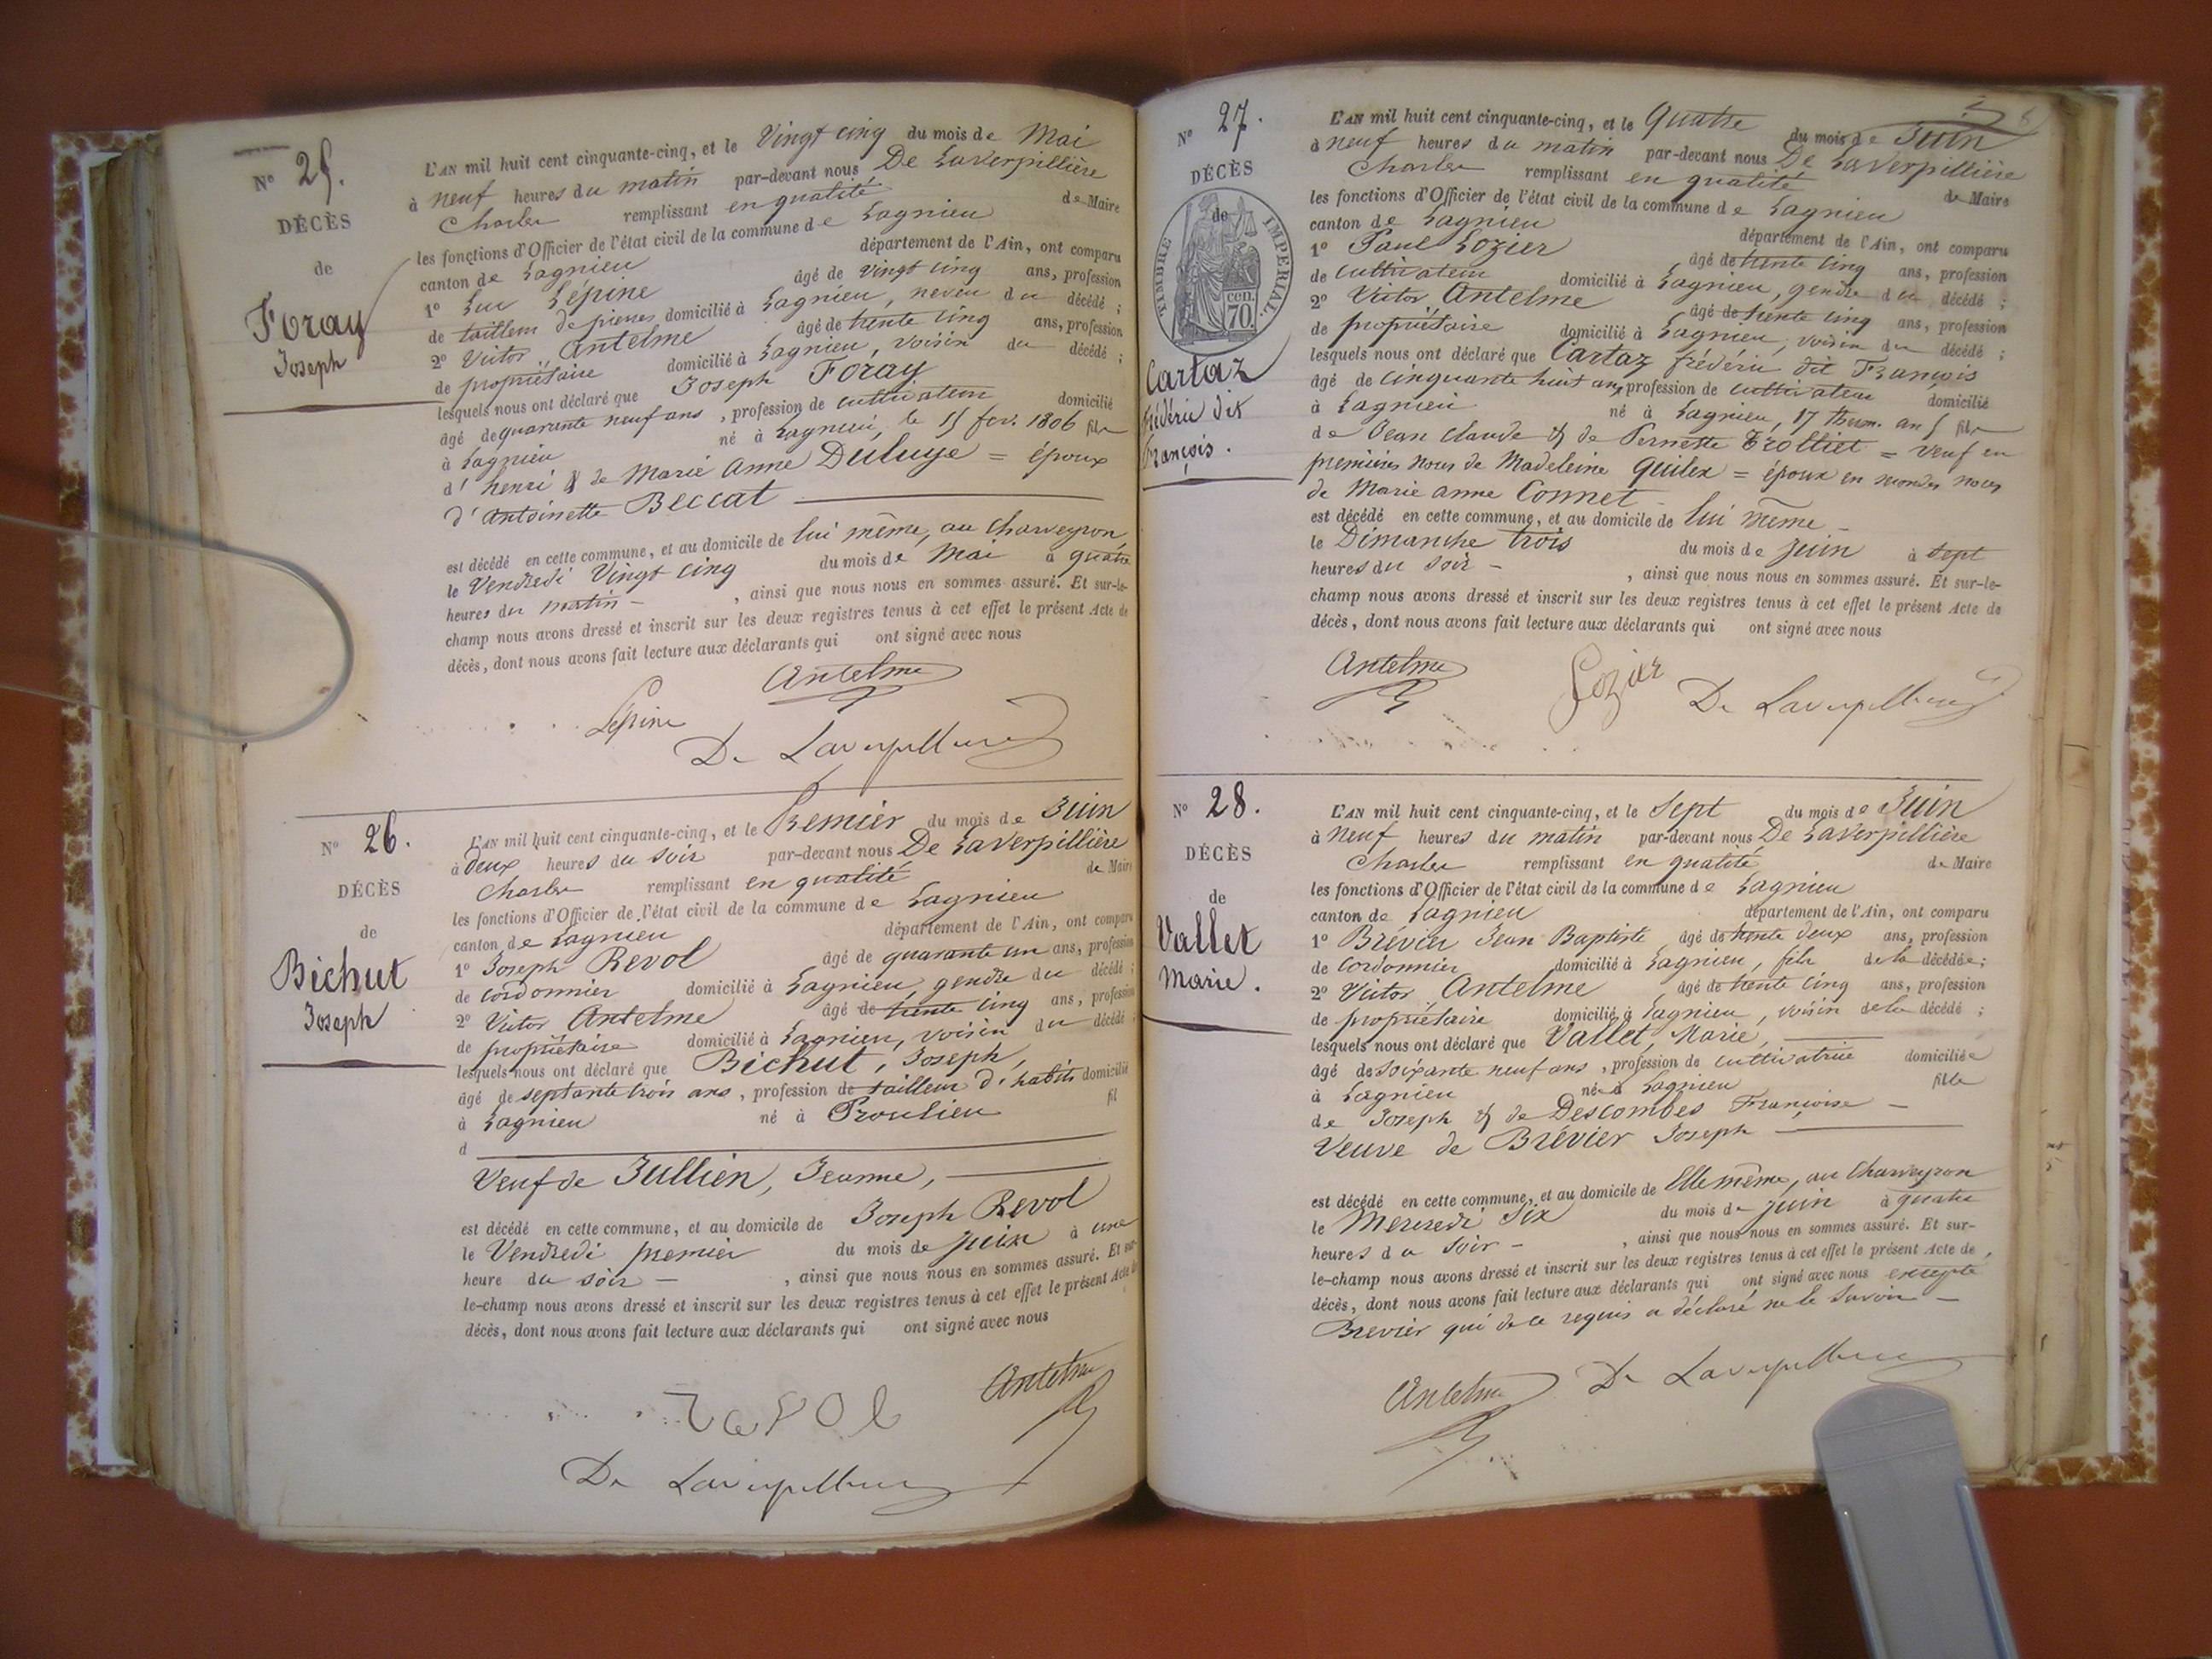 N° 25.
DÉCÈS
de
Foray
Joseph
L'AN mil huit cent cinquante-cinq, et le Vingt cinq du mois de Mai
à neuf heures du matin par-devant nous De Laverpillière
Charles remplissant en qualité de Maire
les fonctions d'Officier de l'état civil de la commune de Lagnieu
canton de Lagnieu département de l'Ain, ont comparu
1° Luc Lépine âgé de vingt cinq ans, profession
de tailleur de pierres domicilié à Lagnieu, neveu du décédé ;
2° Victor Antelme âgé de trente cinq ans, profession
de propriétaire domicilié à Lagnieu, voisin du décédé ;
lesquels nous ont déclaré que Joseph Foray
âgé de quarante neuf ans, profession de cultivateur domicilié
à Lagnieu né à Lagnieu, le 15 fév. 1806 fils
d'henri & de Marie Anne Duluye = époux
d'Antoinette Beccat
est décédé en cette commune, et au domicile de lui même, au Charveyron
le Vendredi Vingt cinq du mois de Mai à quatre
heures du matin - , ainsi que nous nous en sommes assuré. Et sur-le-
champ nous avons dressé et inscrit sur les deux registres tenus à cet effet le présent Acte de
décès, dont nous avons fait lecture aux déclarants qui ont signé avec nous
Antelme
Lépine
De Laverpillière
N° 26.
DÉCÈS
de
Bichut
Joseph
L'AN mil huit cent cinquante-cinq, et le Premier du mois de Juin
à deux heures du soir par-devant nous De Laverpillière
Charles remplissant en qualité de Maire
les fonctions d'Officier de l'état civil de la commune de Lagnieu
canton de Lagnieu département de l'Ain, ont comparu
1° Joseph Revol âgé de quarante un ans, profession
de cordonnier domicilié à Lagnieu, gendre du décédé ;
2° Victor Antelme âgé de trente cinq ans, profession
de propriétaire domicilié à Lagnieu, voisin du décédé
lesquels nous ont déclaré que Bichut, Joseph,
âgé de septante trois ans, profession de tailleur d'habits domicilié
à Lagnieu né à Proulieu fil
d
Veuf de Jullien, Jeanne,
est décédé en cette commune, et au domicile de Joseph Revol
le Vendredi premier du mois de juin à une
heure du soir - , ainsi que nous nous en sommes assuré. Et sur-
le-champ nous avons dressé et inscrit sur les deux registres tenus à cet effet le présent Acte de
décès, dont nous avons fait lecture aux déclarants qui ont signé avec nous
Antelme
revol
De Laverpillière
N° 27.
DÉCÈS
de
TIMBRE IMPERIAL
70 cen.
Cartaz
frédéric dit
François.
L'AN mil huit cent cinquante-cinq, et le Quatre du mois de Juin
à neuf heures du matin par-devant nous De Laverpillière
Charles remplissant en qualité de Maire
les fonctions d'Officier de l'état civil de la commune de Lagnieu
canton de Lagnieu département de l'Ain, ont comparu
1° Paul Lozier âgé de trente cinq ans, profession
de cultivateur domicilié à Lagnieu, gendre du décédé ;
2° Victor Antelme âgé de trente cinq ans, profession
de propriétaire domicilié à Lagnieu, voisin du décédé ;
lesquels nous ont déclaré que Cartaz frédéric dit François
âgé de cinquante huit ans, profession de cultivateur domicilié
à Lagnieu né à Lagnieu, 17 therm. an 5 fils
de Jean Claude & de Pernette Trolliet = veuf en
premières noces de Madeleine Quilex = époux en secondes noces
de Marie Anne Connet
est décédé en cette commune, et au domicile de lui même -
le Dimanche trois du mois de juin à sept
heures du soir - , ainsi que nous nous en sommes assuré. Et sur-le-
champ nous avons dressé et inscrit sur les deux registres tenus à cet effet le présent Acte de
décès, dont nous avons fait lecture aux déclarants qui ont signé avec nous
Antelme Lozier De Laverpillière
N° 28.
DÉCÈS
de
Vallet
Marie.
L'AN mil huit cent cinquante-cinq, et le Sept du mois de Juin
à neuf heures du matin par-devant nous De Laverpillière
Charles remplissant en qualité de Maire
les fonctions d'Officier de l'état civil de la commune de Lagnieu
canton de Lagnieu département de l'Ain, ont comparu
1° Brévier Jean Baptiste âgé de trente deux ans, profession
de cordonnier domicilié à Lagnieu, fils de la décédée ;
2° Victor Antelme âgé de trente cinq ans, profession
de propriétaire domicilié à Lagnieu, voisin de la décédé ;
lesquels nous ont déclaré que Vallet, Marie,
âgé de soixante neuf ans, profession de cultivatrice domiciliée
à Lagnieu née à Lagnieu fille
de Joseph & de Descombes Françoise -
Veuve de Brévier Joseph
est décédé en cette commune, et au domicile de Elle même, au Charveyron
le Mercredi Six du mois de juin à quatre
heures du soir - , ainsi que nous nous en sommes assuré. Et sur-
le-champ nous avons dressé et inscrit sur les deux registres tenus à cet effet le présent Acte de
décès, dont nous avons fait lecture aux déclarants qui ont signé avec nous excepté
Brevier qui de ce requis a déclaré ne le savoir -
Antelme De Laverpillière